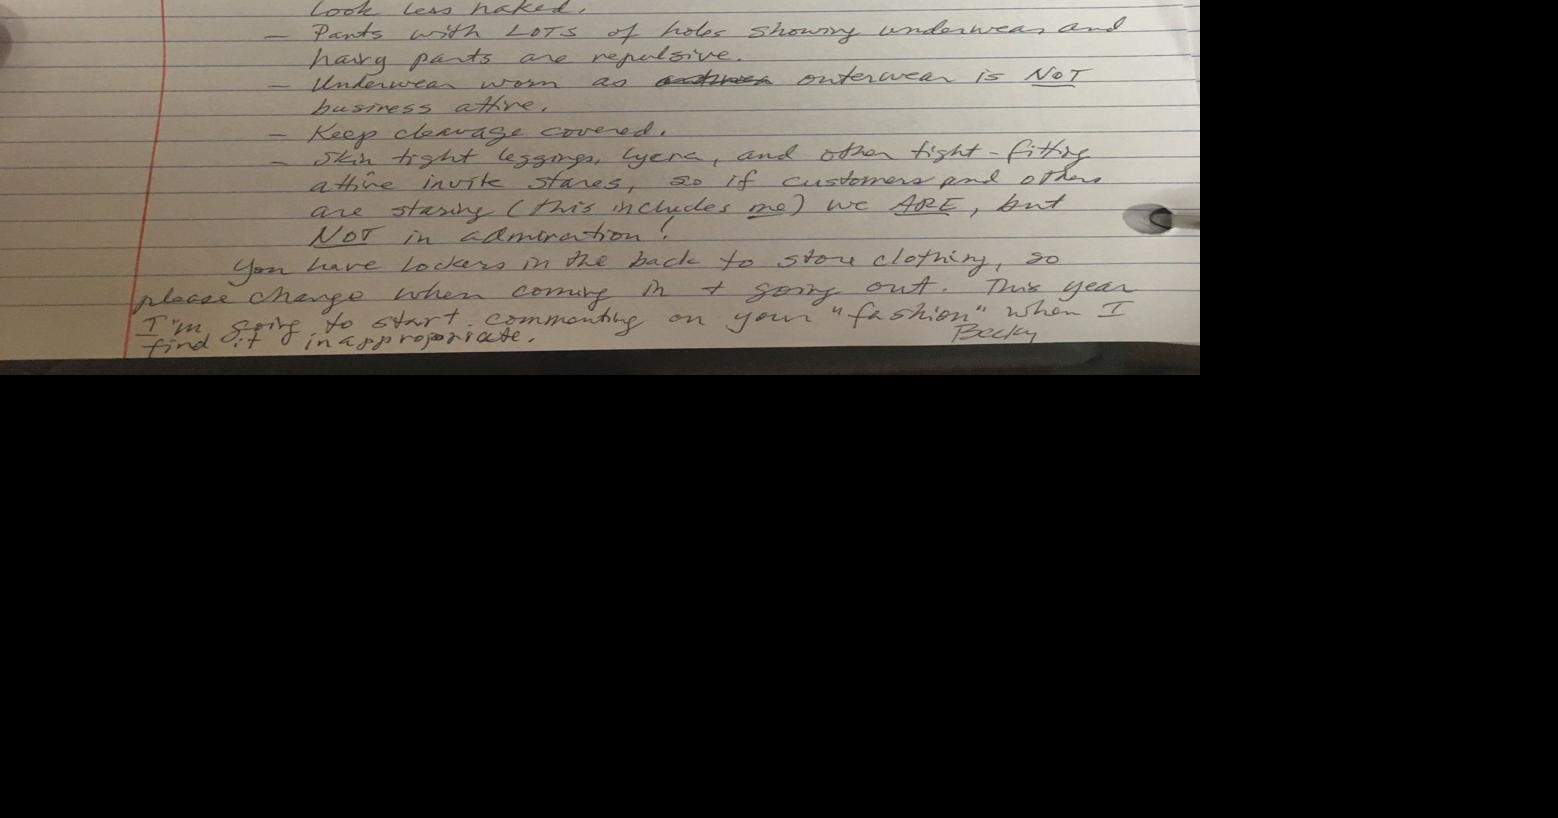 look less naked.
— Pants with LOTS of holes showing underwear and
hairy parts are repulsive.
— Underwear worn as outerwear is NOT
business attire.
— Keep cleavage covered.
— Skin tight leggings, lycra, and other tight-fitting
attire invite stares, so if customers and others
are staring (this includes me) we ARE, but
NOT in admiration!
You have lockers in the back to store clothing, so
please change when coming in + going out. This year
I'm going to start commenting on your "fashion" when I
find it inappropriate.
Becky